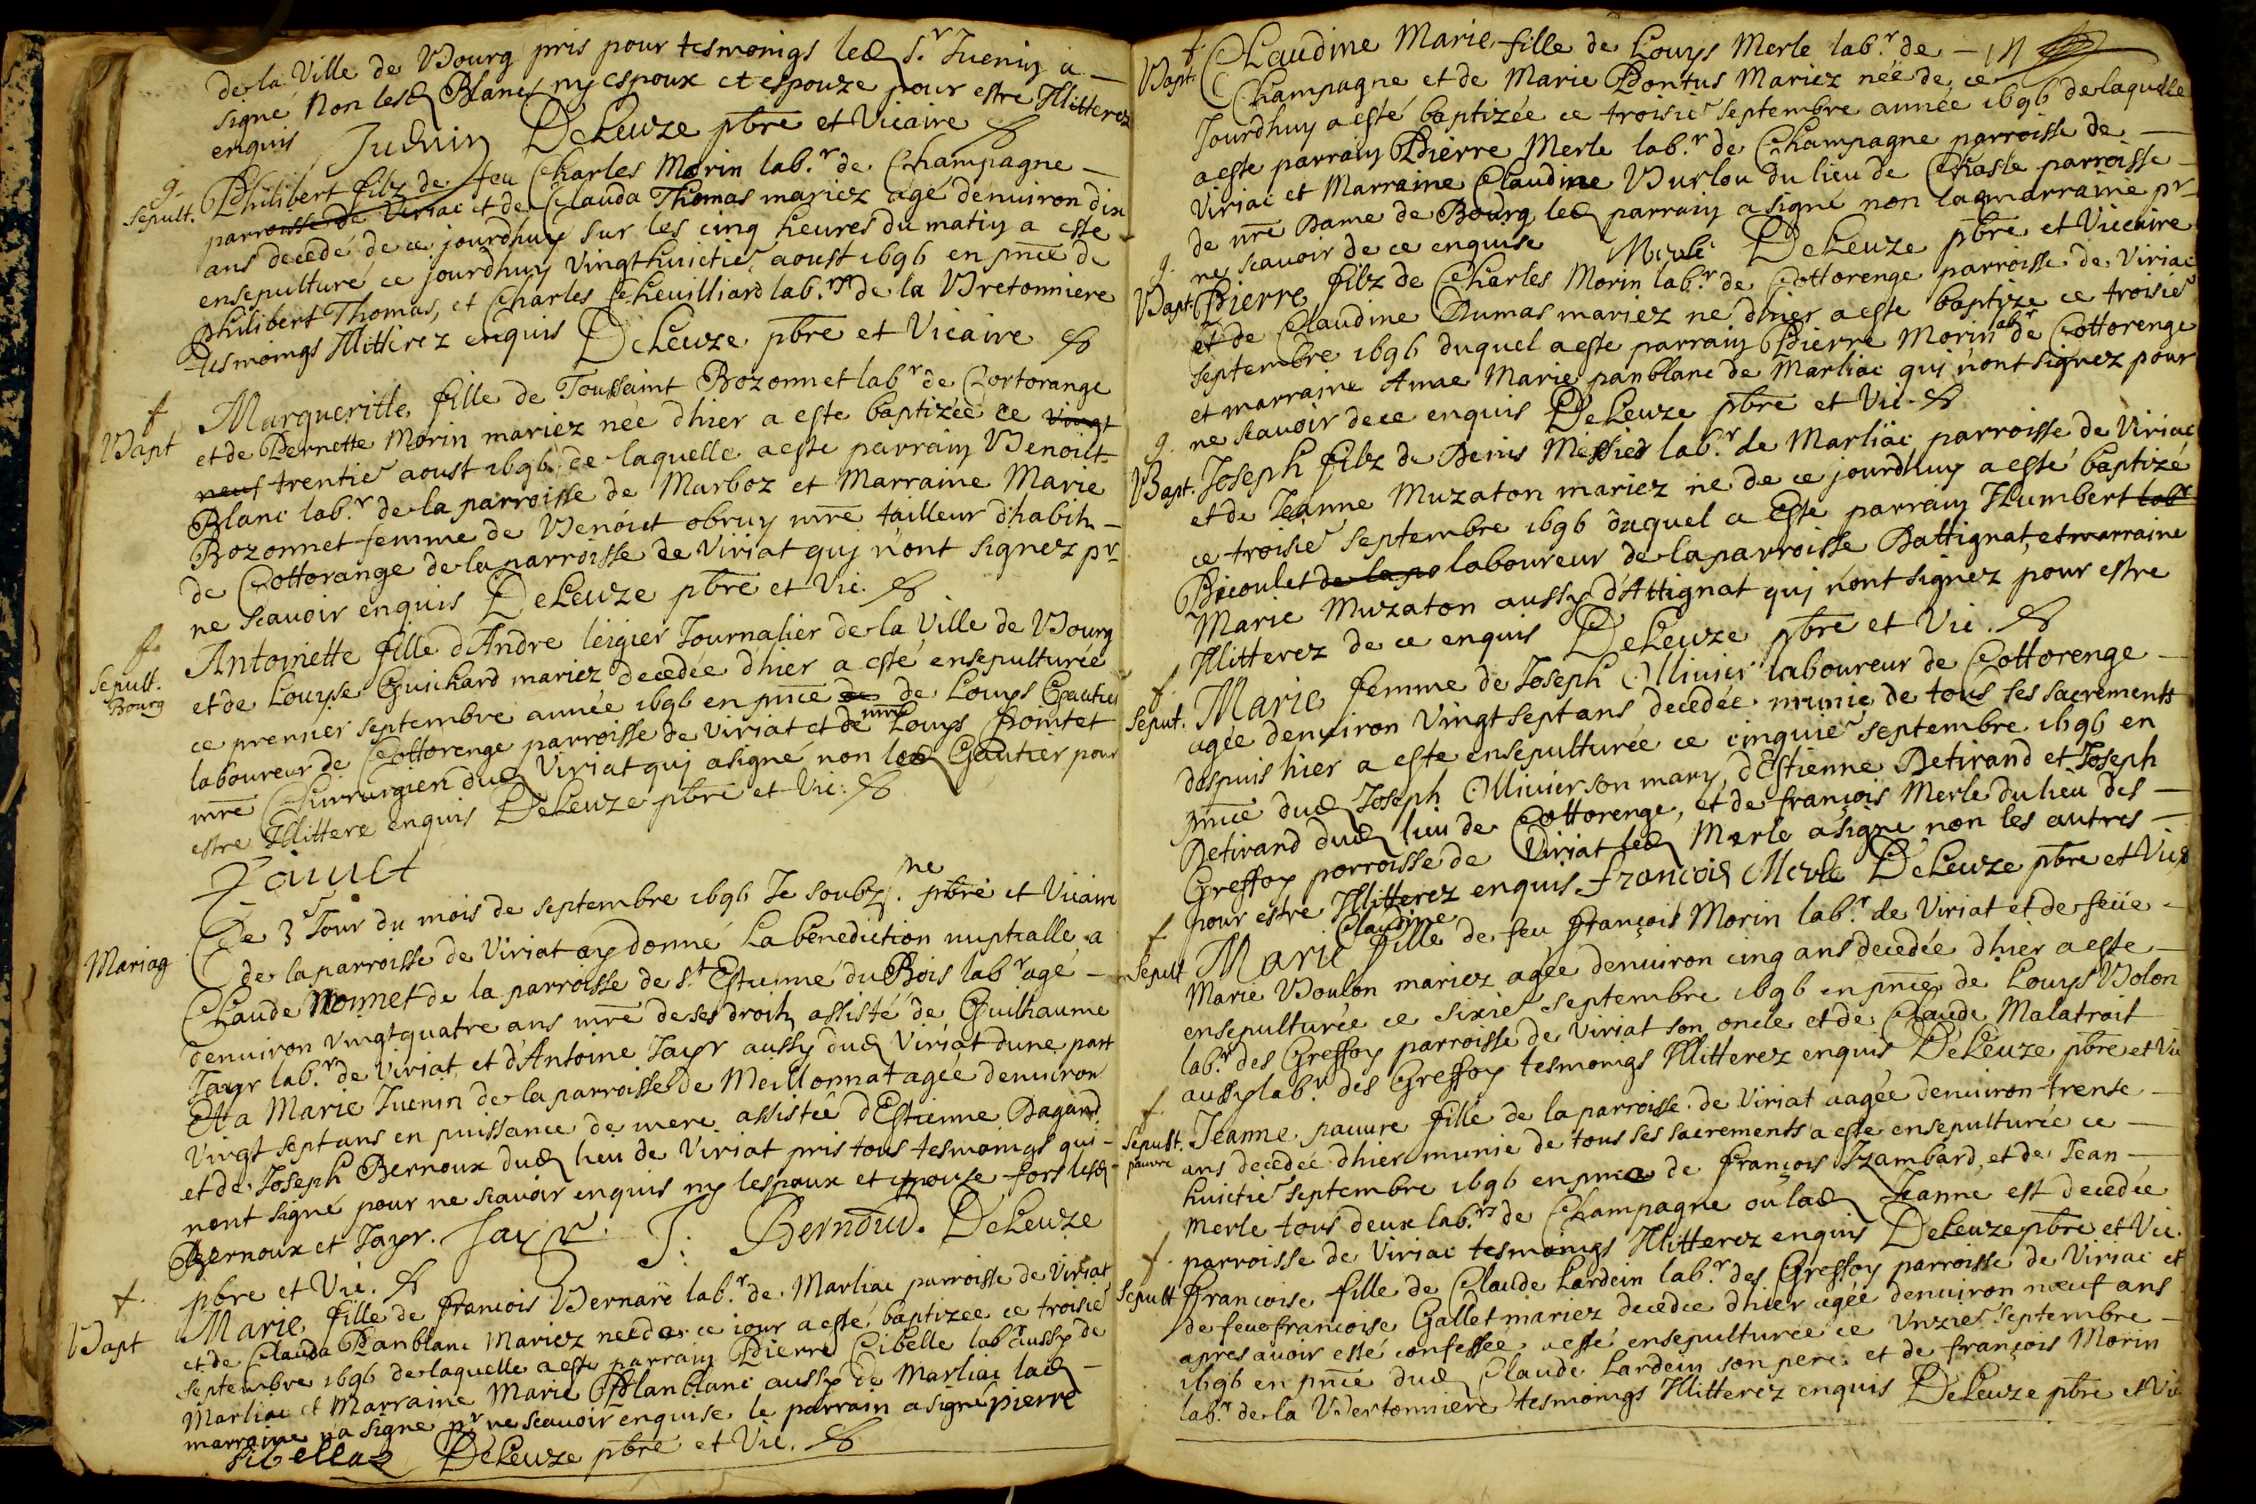 de la Ville de Bourg pris pour tesmoings led. Sr. Juenin a
signé Non lesd. Blanc ny espoux et espouze pour estre Illitterez
enquis Juenin DeLeuze pbre et Vicaire
g.
Sepult. Philibert filz de feu Charles Morin lab.r de Champagne
parroisse de Viriac et de Clauda Thomas mariez agé denuiron dix
ans decedé de ce jourdhuy sur les cinq heures du matin a este
ensepulturé ce jourdhuy vingthuictie aoust 1696 en pnce de
Philibert Thomas, et Charles Cheuilliard lab.rs de la Bretonniere
tesmoings Illitterez enquis DeLeuze pbre et Vicaire
f
Bapt Margueritte fille de Toussaint Bozonnet labr de Cortorange
et de Pernette Morin mariez née dhier a este baptizée ce vingt
neuf trentie aoust 1696 de laquelle a este parrain Benoilt
Blanc lab.r de la parroisse de Marboz et Marraine Marie
Bozonnet femme de Benoict obruy mre tailleur dhabitz
de Cottorange de la parroisse de Viriat quj n'ont signez pr
ne scauoir enquis DeLeuze pbre et Vic.
f.
Sepult. Bourg Antoinette fille dAndre leigier Journalier de la Ville de Bourg
et de Louyse Guichard mariez decedée dhier a esté ensepulturée
ce premier septembre année 1696 en pnce de de Louys Gautier
laboureur de Cottorenge parroisse de Viriat et de mre Louys Pointet
mre Chirurgien dud. Viriat quj a signé non led. Gautier pour
estre Illittere enquis DeLeuze pbre et Vic.
Mariag Ce 3e Jour du mois de septembre 1696 Je soubz.ne pbre et Vicaire
de la parroisse de Viriat ay donné La benediction nuptialle a
Claude Monnet de la parroisse de St Estienne du Bois labr agé
denuiron vingtquatre ans mre de ses droitz assisté de Guilhaume
Jayr lab.r de Viriat et d'Antoine Jayr aussy dud. Viriat dune part
Et a Marie Juenin de la parroisse de Meillonnat agée denuiron
vingt sept ans en puissance de mere assistée dEstienne Dagand
et de Joseph Bernoux dud. lieu de Viriat pris tous tesmoings qui
nont signé pour ne scauoir enquis ny lespoux et espouse fors lesd.
Bernoux et Jayr. Jayr. J: Bernoud. DeLeuze
pbre et Vic.
f.
Bapt Marie fille de francois Bernard lab.r de Marliac parroisse de Viriat
et de Clauda Panblanc Mariez née de ce iour a esté baptizée ce troisie
septembre 1696 de laquelle a este parrain Pierre Cibelle labr aussy de
Marliac et Marraine Marie Planblanc aussy de Marliac lad.
marraine n'a signe pr ne scauoir enquise le parrain a signé pierre
sibellaz DeLeuze pbre et Vic.
f.
Bapt. Claudine Marie fille de Louys Merle lab.r de
Champagne et de Marie Pontus Mariez née de ce
Jourdhuy a esté baptizée ce troisie septembre année 1696 de laquelle
a este parrain Pierre Merle lab.r de Champagne parroisse de
Viriac et Marraine Claudine Burlou du lieu de Chasle parroisse
de nre Dame de Bourg led. parrain a signé non lad. marraine pr
ne scauoir de ce enquise Merle DeLeuze pbre et Viccaire
g.
Bapt. Pierre filz de Charles Morin lab.r de Cottorenge parroisse de Viriac
et de Claudine Dumas mariez né dhier a este baptize ce troisie
septembre 1696 duquel a este parrain Pierre Morin labr de Cottorenge
et marraine Anne Marie panblanc de Marliac qui n'ont signez pour
ne scauoir de ce enquis DeLeuze pbre et Vic.
g.
Bapt. Joseph filz de Denis Messier lab.r de Marliac parroisse de Viriac
et de Jeanne Muzaton mariez né de ce jourdhuy a esté baptizé
ce troisie septembre 1696 duquel a Este parrain Humbert labr
Bicoulet de la pa laboureur de la parroisse Dattignat, et marraine
Marie Muzaton aussy d'Attignat quj n'ont signez pour estre
Illitterez de ce enquis DeLeuze pbre et Vic.
f.
Seput. Marie femme de Joseph Ollivier laboureur de Cottorenge
agée denuiron vingt sept ans decedée munie de tous ses sacrements
despuis hier a este ensepulturée ce cinquie septembre 1696 en
pnce dud. Joseph Ollivier son mary, dEstienne Betirand et Joseph
Betirand dud. lieu de Cottorenge, et de françois Merle du lieu des
Greffoy porroisse de Viriat led. Merle a signe non les autres
pour estre Illitterez enquis francois Merle DeLeuze pbre et Vic
f
Sepult Marie Claudine fille de feu françois Morin lab.r de Viriat et de feüe
Marie Boulon mariez agée denuiron cinq ans decedée dhier a este
ensepulturée ce sixie septembre 1696 en pnce de Louys Bolon
lab.r des Greffoy parroisse de Viriat son oncle et de Claude Malatrait
aussy lab.r des Greffoy tesmoings Illitterez enquis DeLeuze pbre et Vic
f.
Sepult. pauvre Jeanne pauure fille de la parroisse de Viriat aagée denuiron trente
ans decedée dhier munie de tous ses sacrements a este ensepulturée ce
huictie septembre 1696 en pnce de françois Izambard, et de Jean
Merle tous deux lab.rs de Champagne ou lad. Jeanne est decedée
parroisse de Viriac tesmoings Illitterez enquis DeLeuze pbre et Vic.
f.
Sepult Francoise fille de Claude Lardein lab.r des Greffoy parroisse de Viriac et
de feue francoise Gallet mariez decedee dhier agée denuiron nœuf ans
apres auoir esté confessée a esté ensepulturée ce Vnzie septembre
1696 en pnce dud. Claude Lardein son pere et de françois Morin
lab.r de la Vertonniere tesmoings Illitterez enquis DeLeuze pbre et Vic